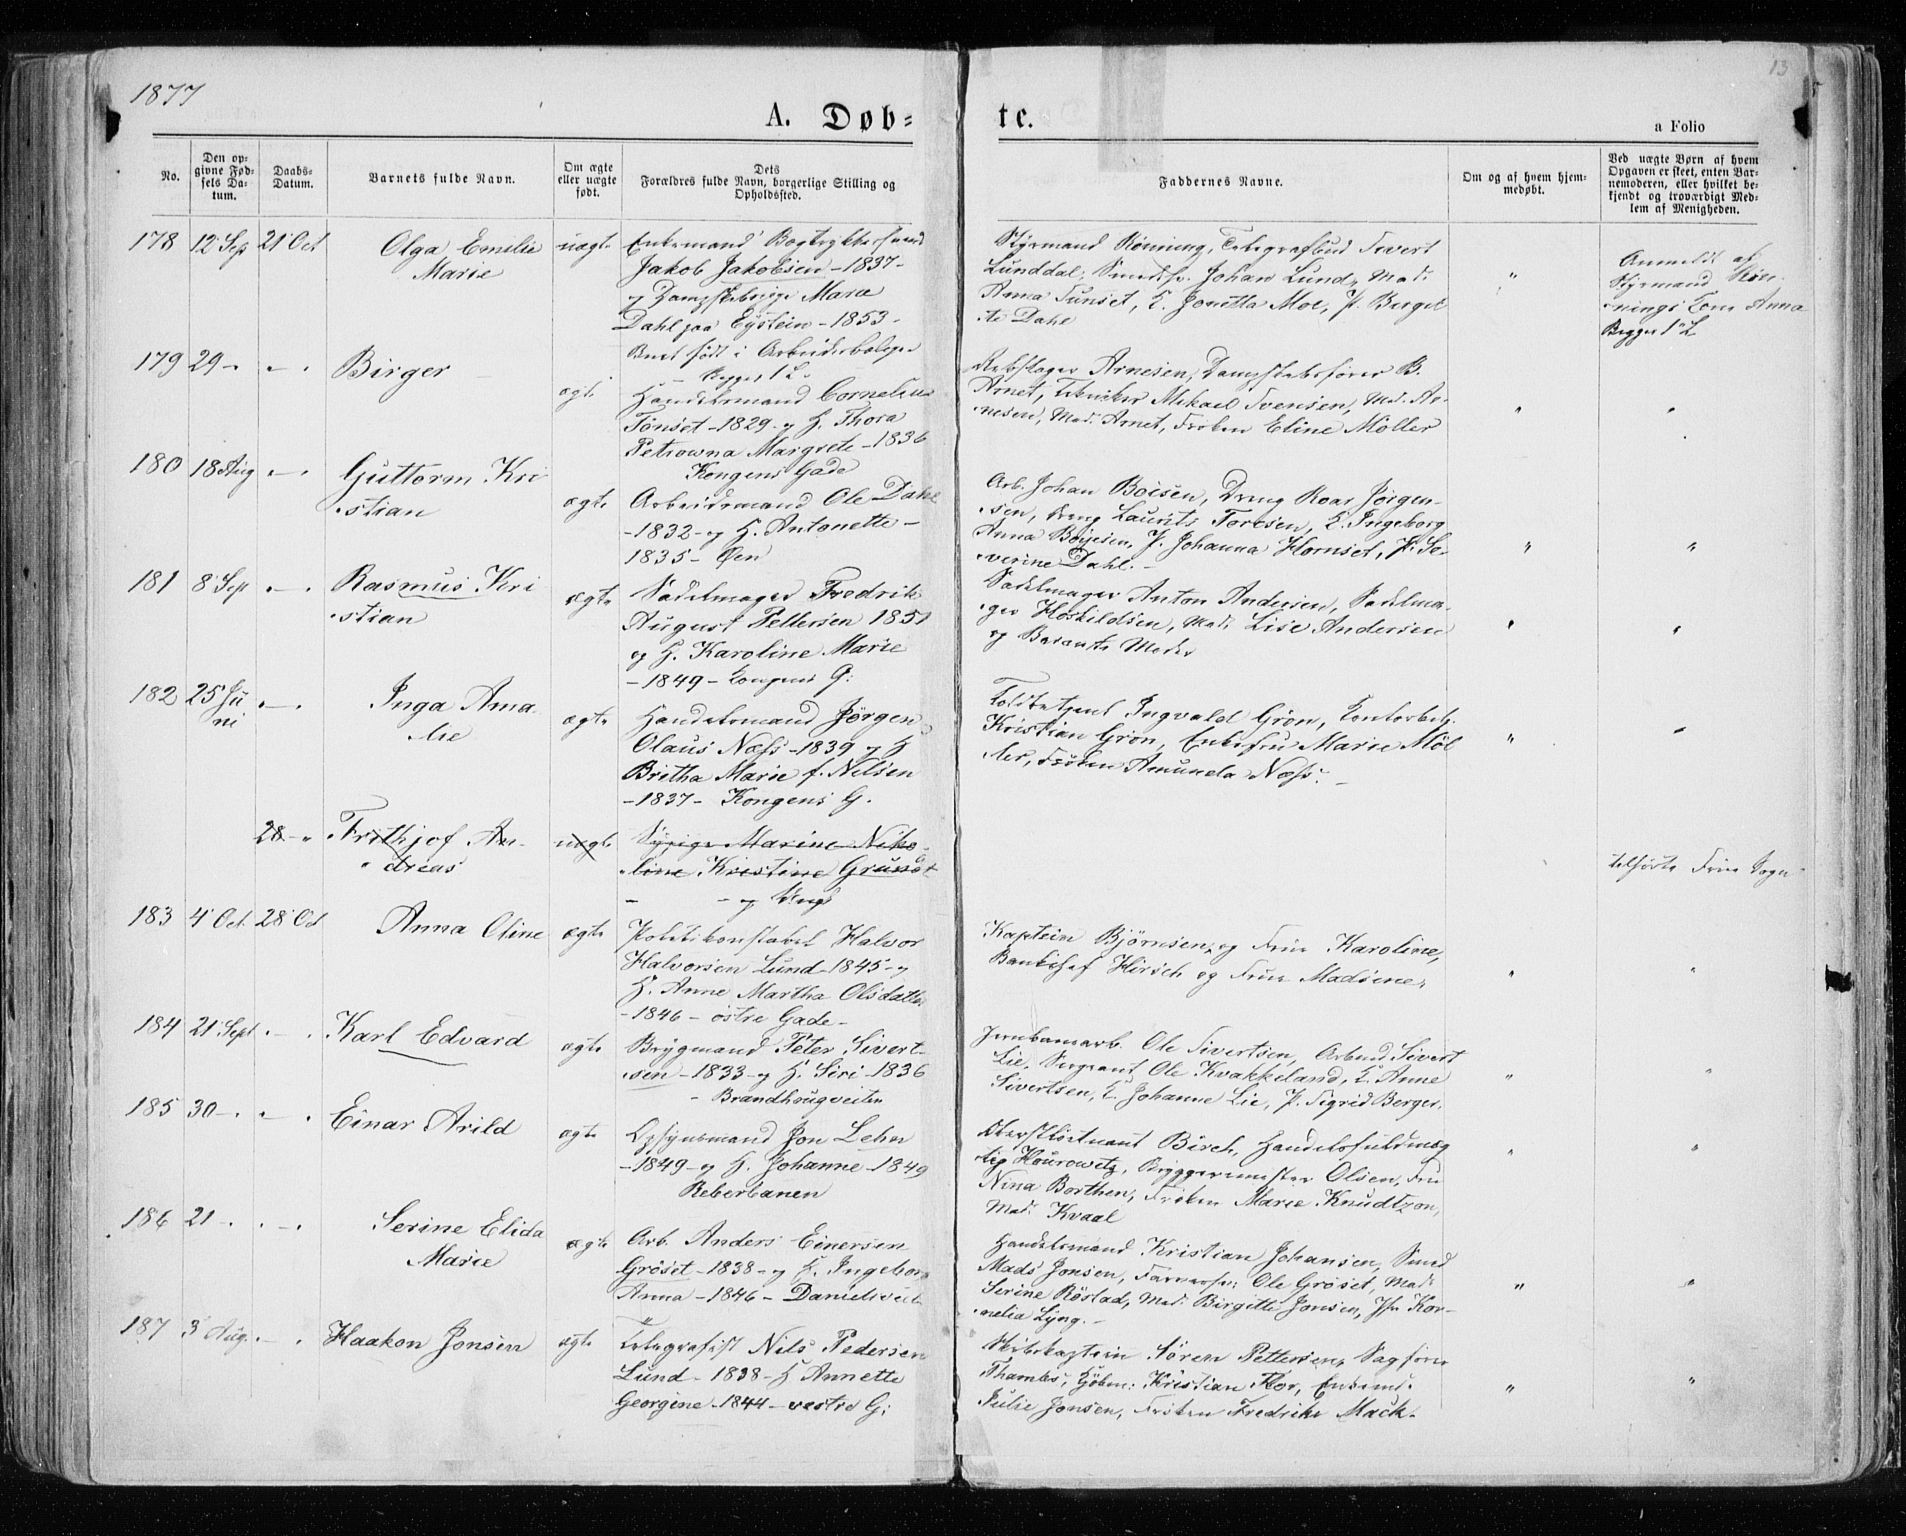 1877
13
A. Døb=
te.
a Folio
No.
Den op-
givne Fød-
sels Da-
tum.
Daabs-
Datum.
Barnets fulde Navn.
Om ægte
eller uægte
født.
Dets
Forældres fulde Navn, borgerlige Stilling og
Opholdssted.
Faddernes Navne.
Om og af hvem hjem-
medøbt.
Ved uægte Børn af hvem
Opgaven er skeet, enten Bar-
nemoderen, eller hvilket be-
kjendt og troværdigt Med-
lem af Menigheden.
178 12 Sep 21 Oct Olga Emilie
Marie
uægte
Enkemand Bogtrykkersvend
Jakob Jakobsen - 1837 -
og Marie
Dahl paa Eystein - 1853 -
Barnet født i Arbeiderboliger
- Begge 1 L -
Styrmand Rönning, Telegrafbud Sivert
Lunddal, Smedsv. Johan Lund, Mad.
Anna Tunset, E. Jonetta Moe, P. Berget
te Dahl
"
Anmeldt af
Styrmand Røn-
nings Kone Anna
Begge 1 L
179 29 - " - " Birger
ægt.
Handelsmand Cornelius
Tönset - 1829 - og H. Thora
Petrowna Margrete - 1836
Kongens Gade
Rebslager Arnesen, Dampskibsfører B.
Arnet, Tekniker Mikael Svensen, Mad. Ar-
nesen, Mad. Arnet, Frøken Eline Möller
" "
180 18 Aug " - " Guttorm Kri
stian
ægte
Arbeidsmand Ole Dahl
- 1832 - og H. Antonette -
1835 - Øen
Arb. Johan Boisen, Dreng Roar Jørgen-
sen, Dreng Laurits Toresen, E. Ingeborg
Anna Boijesen, P. Johanna Hornset, P. Se-
verine Dahl. -
" "
181 8 Sept " - " Rasmus Kri
stian
ægte
Sadelmager Fredrik
August Pettersen 1851
og H. Karoline Marie
- 1849 - Kongens G:
Sadelmager Anton Andersen, Sadelma-
ger Hoskildsen, Mad. Lise Andersen
og Barnets Moder
" "
182 25 Ju
ni " - " Inga Ama
lie
ægte
Handelsmand Jörgen
Olaus Næss - 1839 og H
Britha Marie f. Nilsen
- 1837 - Kongens G.
Toldbetjent Ingvald Grön, Kontorbetj.
Kristian Grön, Enkefru Marie Möl
ler, Frøken Amunda Næss. -
" "
28 - " Frithjof An-
dreas
uægte
Pige Marine Niko-
line Kristine Grundt
- - og Ungk
tilførte Frue Sogn
183 4 Oct. 28 Oct Anna Oline
ægte
Politikonstabel Halvor
Halvorsen Lund - 1845 - og
H. Anne Martha Olsdatter
- 1846 - østre Gade -
Kaptein Björnsen, og Frue Karoline,
Bankchef Hirsch og Frue Madsine,
" "
184 21 Sept " - " Karl Edvard
ægte
Brygmand Peter Sivert-
sen - 1833 - og H. Siri - 1836
- Brandhaugveiten
Jernbanearb. Ole Sivertsen, Arbmd. Sivert
Lie, Sergeant Ole Kvakkeland, E. Anne
Sivertsen, E. Johanne Lie, P. Sigrid Berger.
" "
185 30 - " - " Einar Arild
ægte
Opsynsmand Jon Lehn
- 1849 - og H. Johanne - 1849
Reberbanen
Oberstløitnant Birch, Handelsfuldmæg
tig Hourowitz, Bryggermester Olsen, Fru
Nina Borthen, Frøken Marie Knudtzon,
Mad. Kvaal
" "
186 21 - " - " Serine Elida
Marie
ægte
Arb. Anders Einersen
Gröset - 1838 - og H. Ingeborg
Anna - 1846 - Danielsveit
Handelsmand Kristian Johansen, Smed
Mads Jonsen, Farversv: Ole Gröset, Mad.
Serine Röstad, Mad. Birgitte Jonsen, Jfr. Kor-
nelia Ljeng. -
" "
187 3 Aug. " - " Haakon Jonsen
ægte
Telegrafist Nils Pedersen
Lund - 1838 - H Annette
Georgine - 1844 - vestre G:
Skibskaptein Sören Pettersen, Sagfører
Thambs, Kjöbm: Kristian Flor, Enkemd.
Julie Jonsen, Frøken Fredrikke Mack.
" "